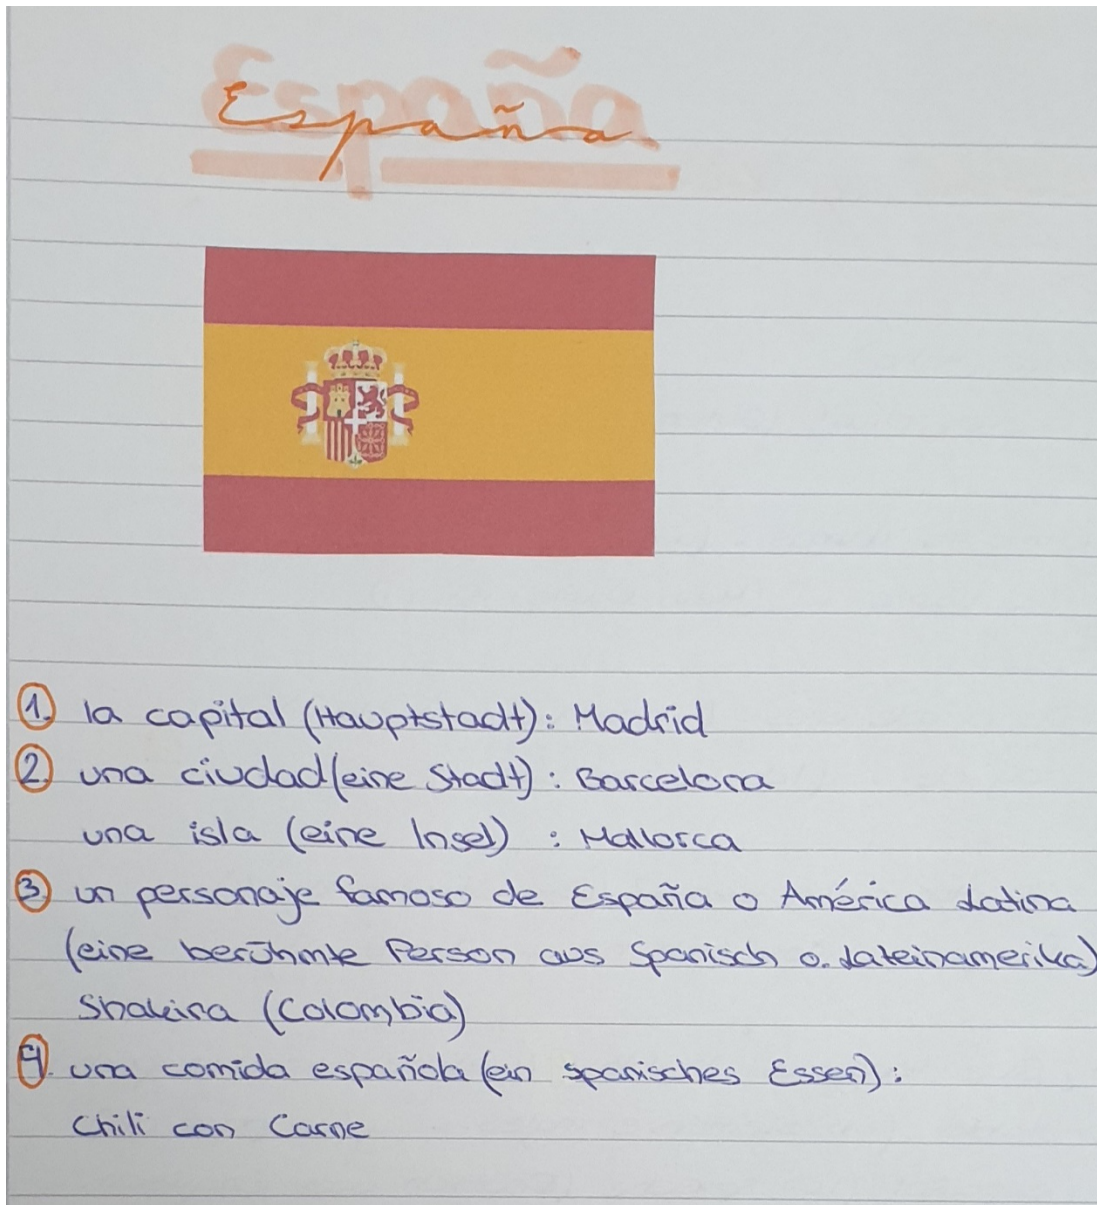 España
1. la capital (Hauptstadt): Madrid
2. una ciudad (eine Stadt): Barcelona
una isla (eine Insel) : Mallorca
3. un personaje famoso de España o América Latina
(eine berühmte Person aus Spanisch o. Lateinamerika)
Shakira (Colombia)
4. una comida española (ein spanisches Essen):
Chili con Carne